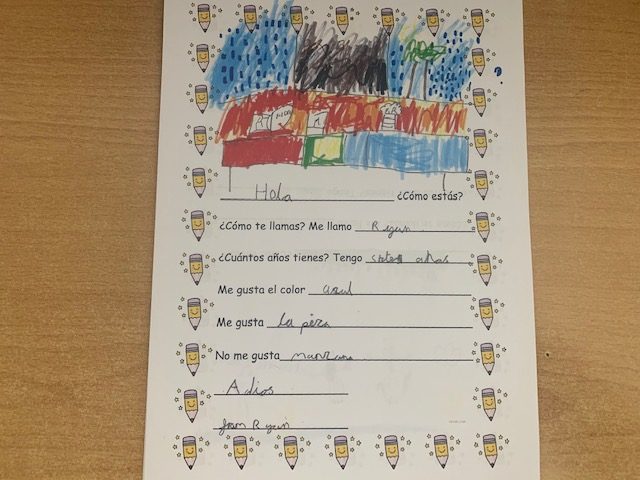 Hola ¿Cómo estás?
¿Cómo te llamas? Me llamo Ryan
¿Cuántos años tienes? Tengo años
Me gusta el color azul
Me gusta la pera
No me gusta manzana
Adios
from Ryan